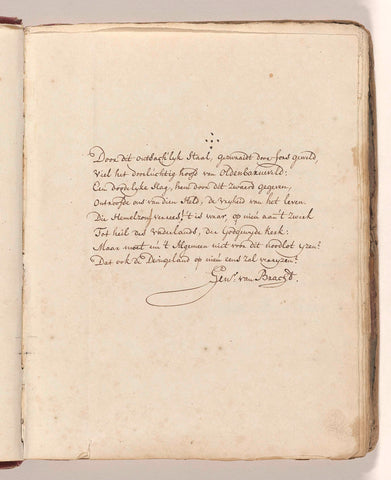 Door dit ontsachlijk Staal, gezwaaidt door fors geweld,
Viel het doorluchtig hoofd van Oldenbarneveld:
Een doodelyke slag, hem door dit zwaard gegeven,
Ontroofde ons van dien Held, de vryheid van het leven.
Die Hemelzon verrees, 't is waar, op nieu aan 't zwerk
Tot heil des Vaderlands, der Godgewyde kerk:
Maar moet in 't Algemeen niet voor dit noodlot yzen?
Dat ook de Dwingeland op nieu eens zal verryzen?
van Bracht.